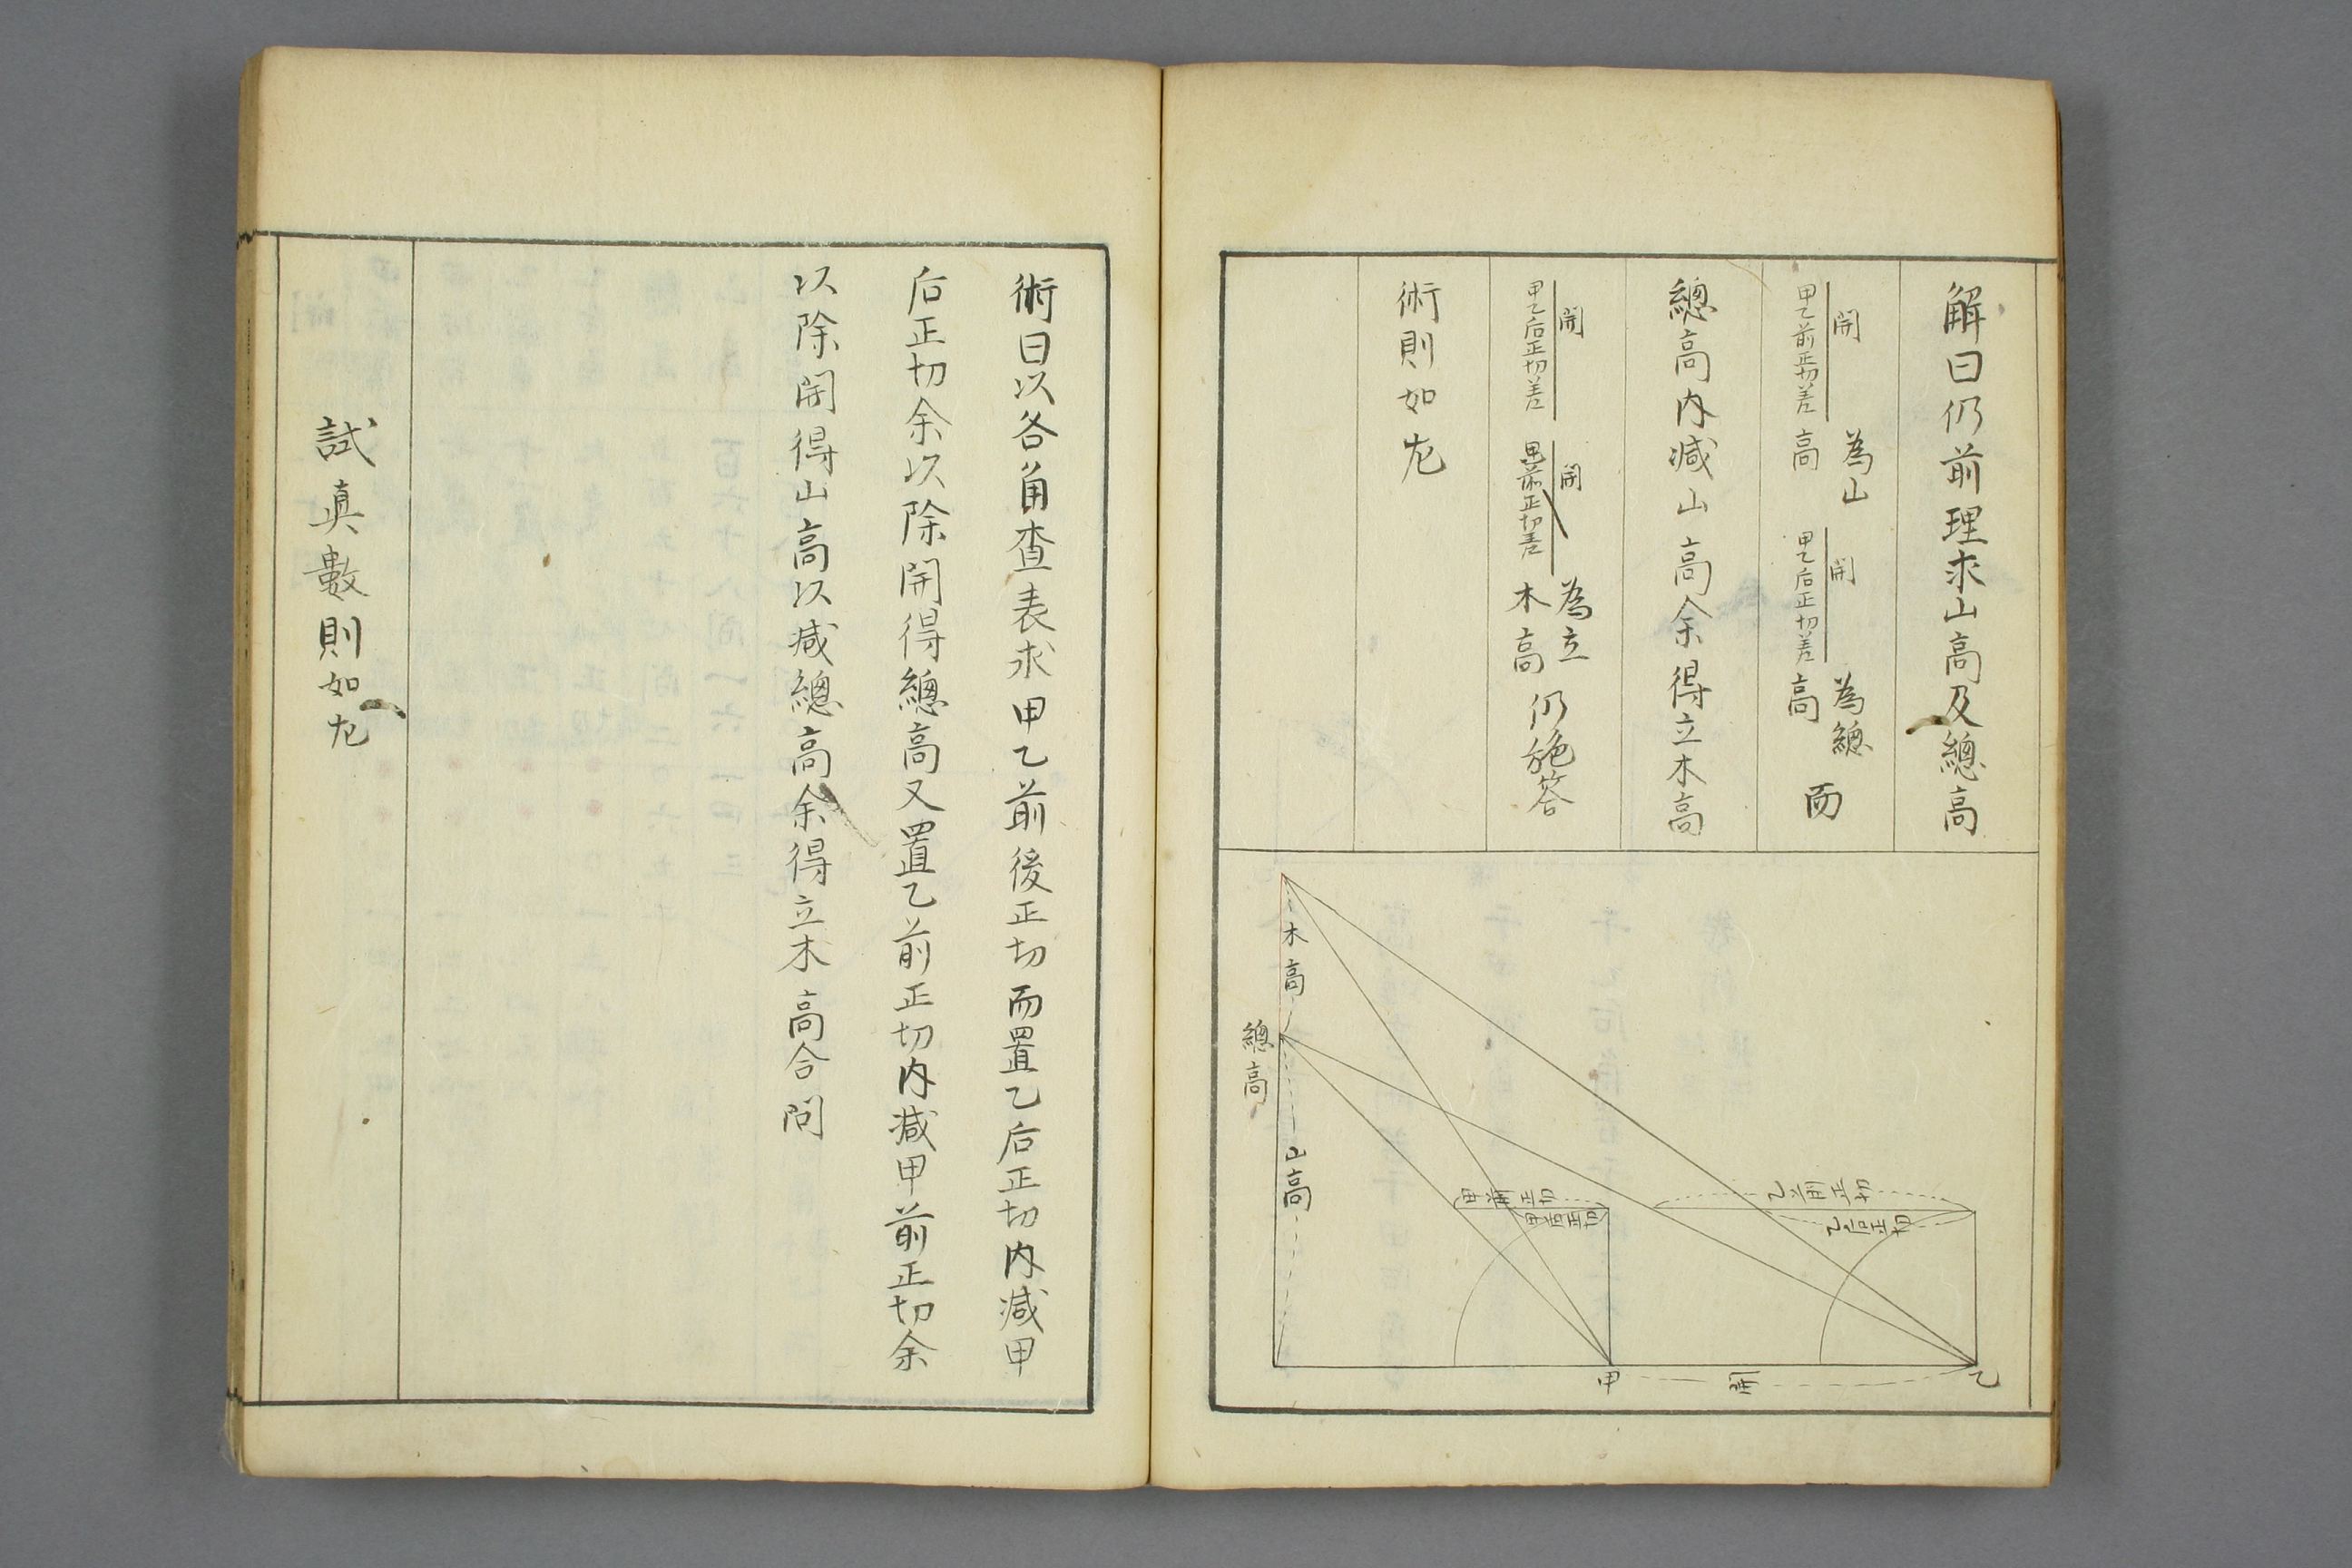 解曰仍前理求山高及總高
開
甲乙前正切差
為山
高
開
甲乙后正切差
為總
高
而
總高内減山高余得立木高
開
甲乙后正切差
開
甲乙前正切差
為立
木高
仍施答
術則如左
木高
總高
山高
甲前正切
甲后正切
乙前正切
乙后正切
甲
開
乙
術曰以各角查表求甲乙前後正切而置乙后正切内減甲
后正切余以除開得總高又置乙前正切内減甲前正切余
以除開得山高以減總高余得立木高合問
試真數則如左